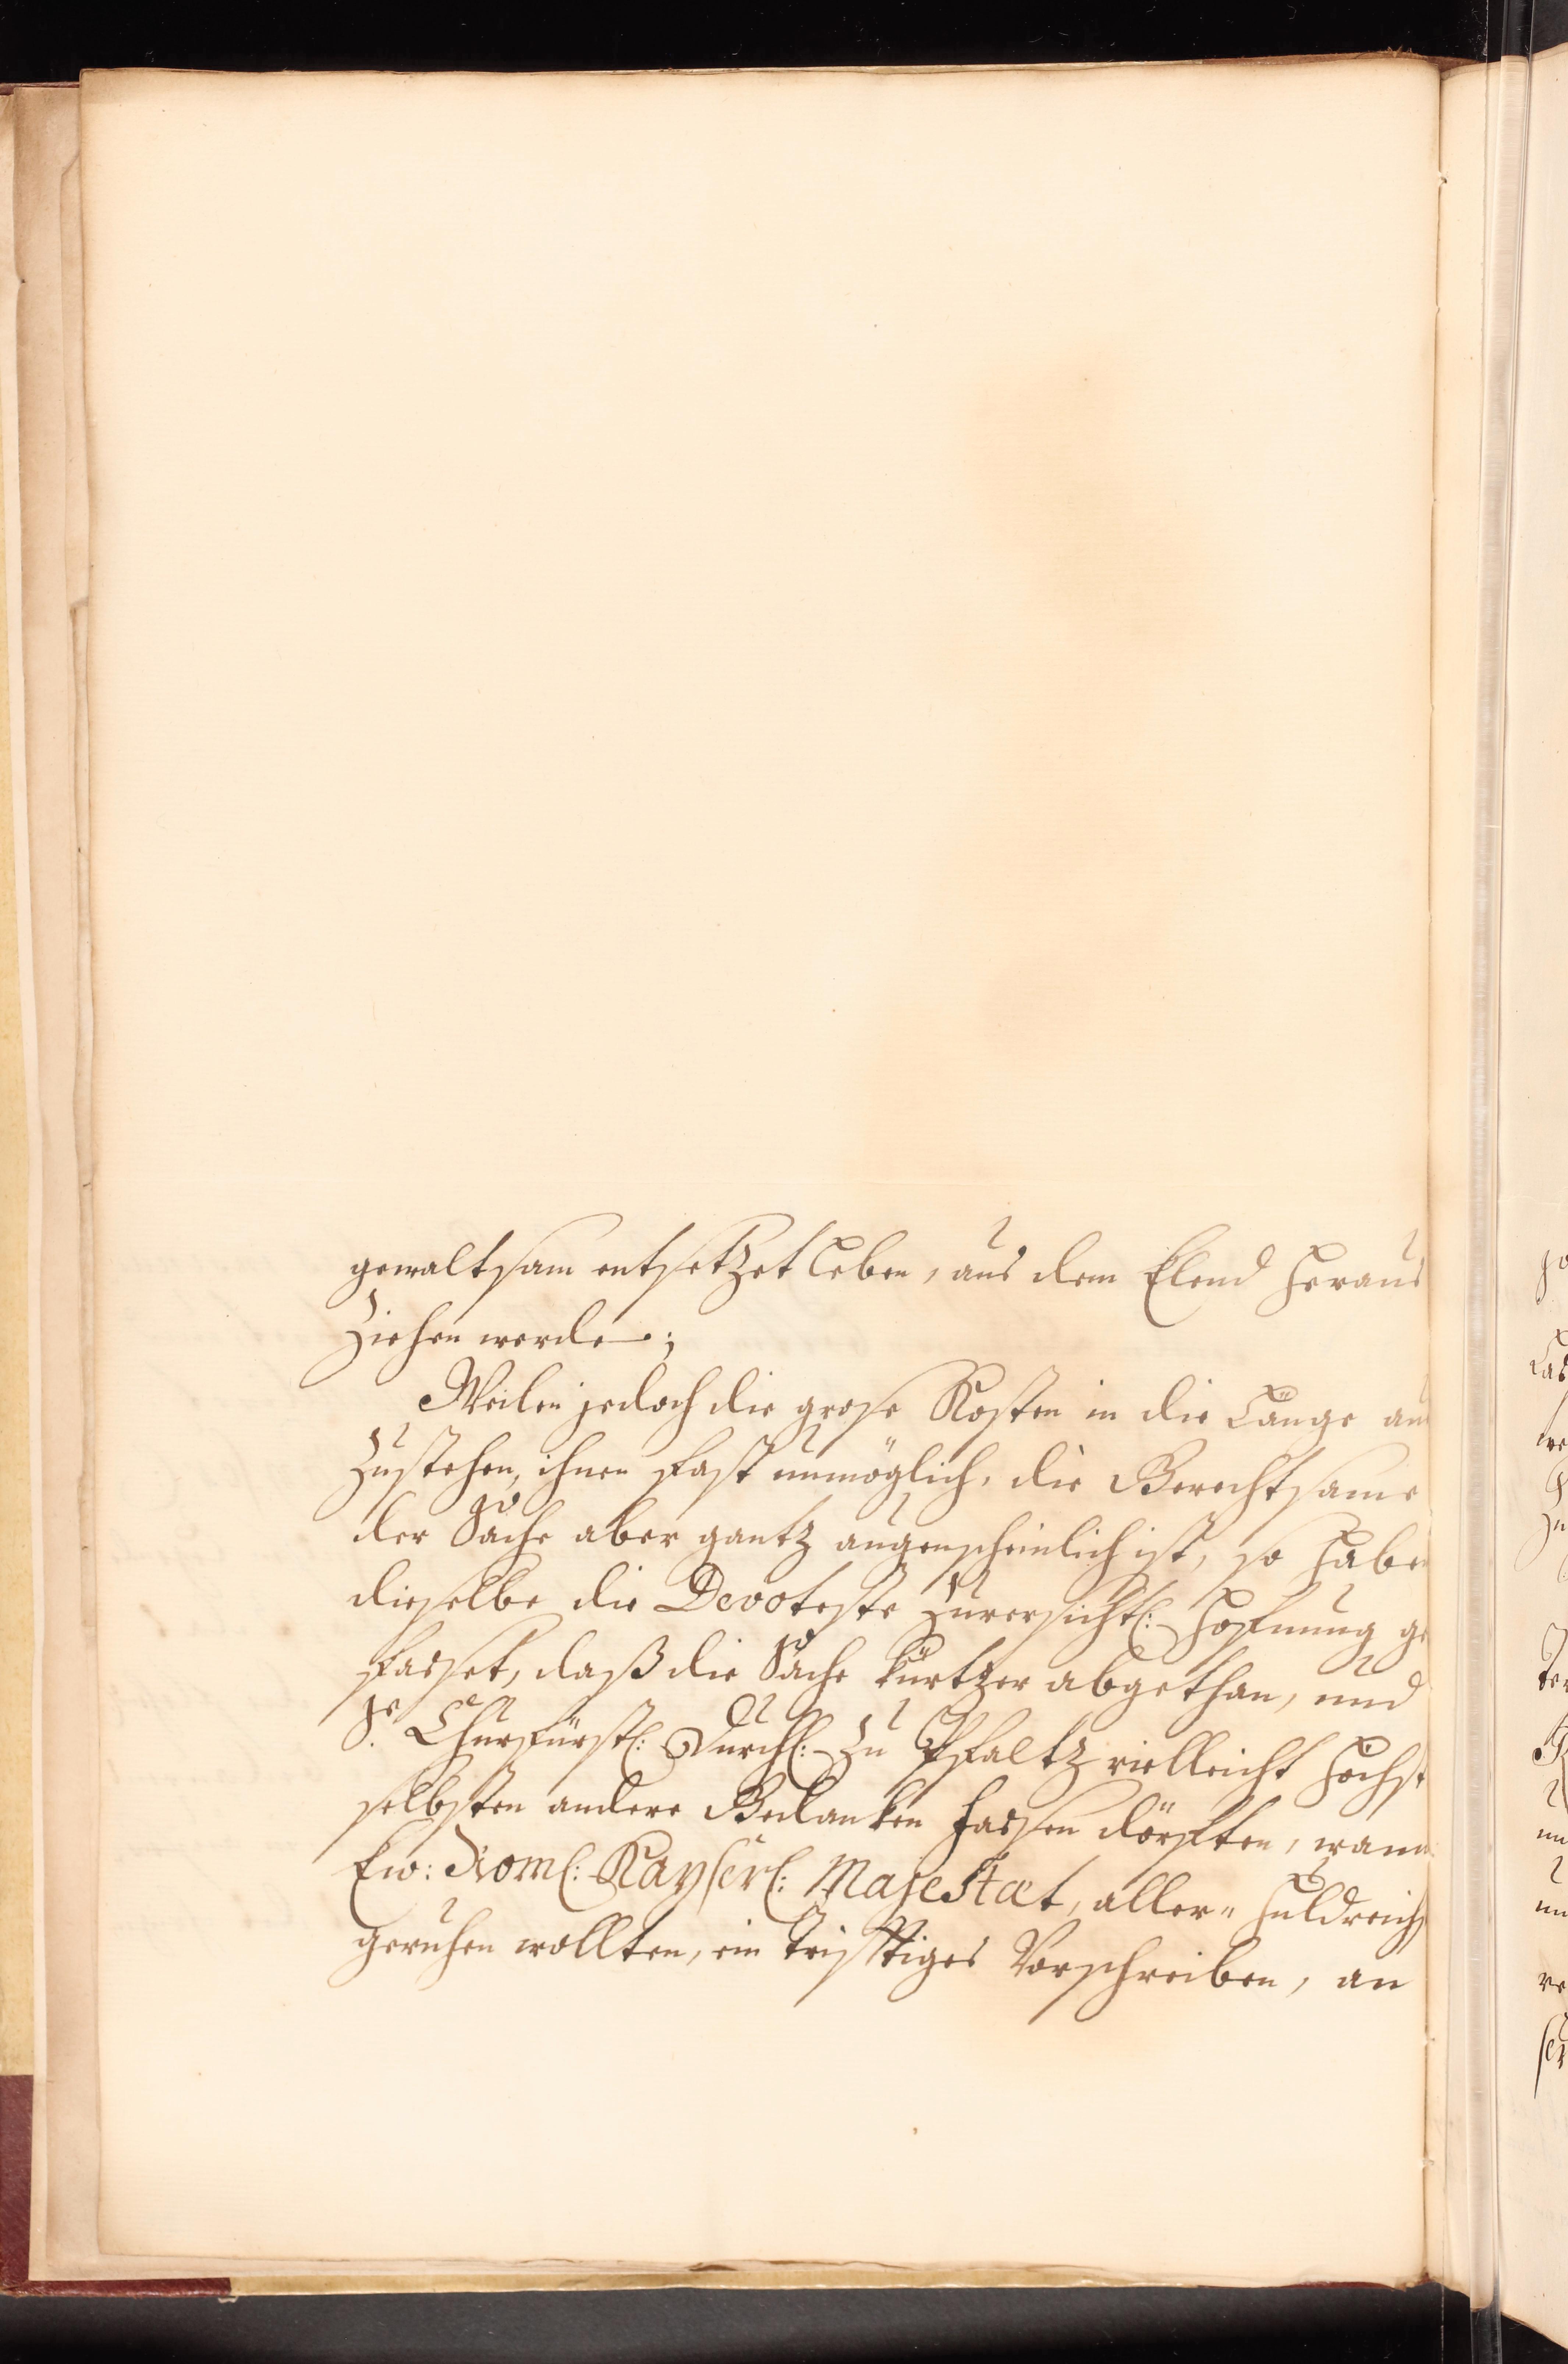 gewaltsam entsetzet leben, aus dem Elend heraus
ziehen werde;
Weilen jedoch die grose Kosten in die Länge aus
zustehen, ihnen fast unmöglich, die Gerechtsame
der Sache aber gantz augenscheinlich ist, so haben
dieselbe die Devoteste zuversichtl: Hofnung ge
fasset, daß die Sache kürtzer abgethan, und
Se. Churfürstl: Durchl: zu Pfaltz vielleicht höchst
selbsten andere Gedanken fassen dörfften, wann
Ew: Röml: Kayserl: Majestæt, aller-huldreichst
geruhen wollten, ein trifftiges Vorschreiben, an